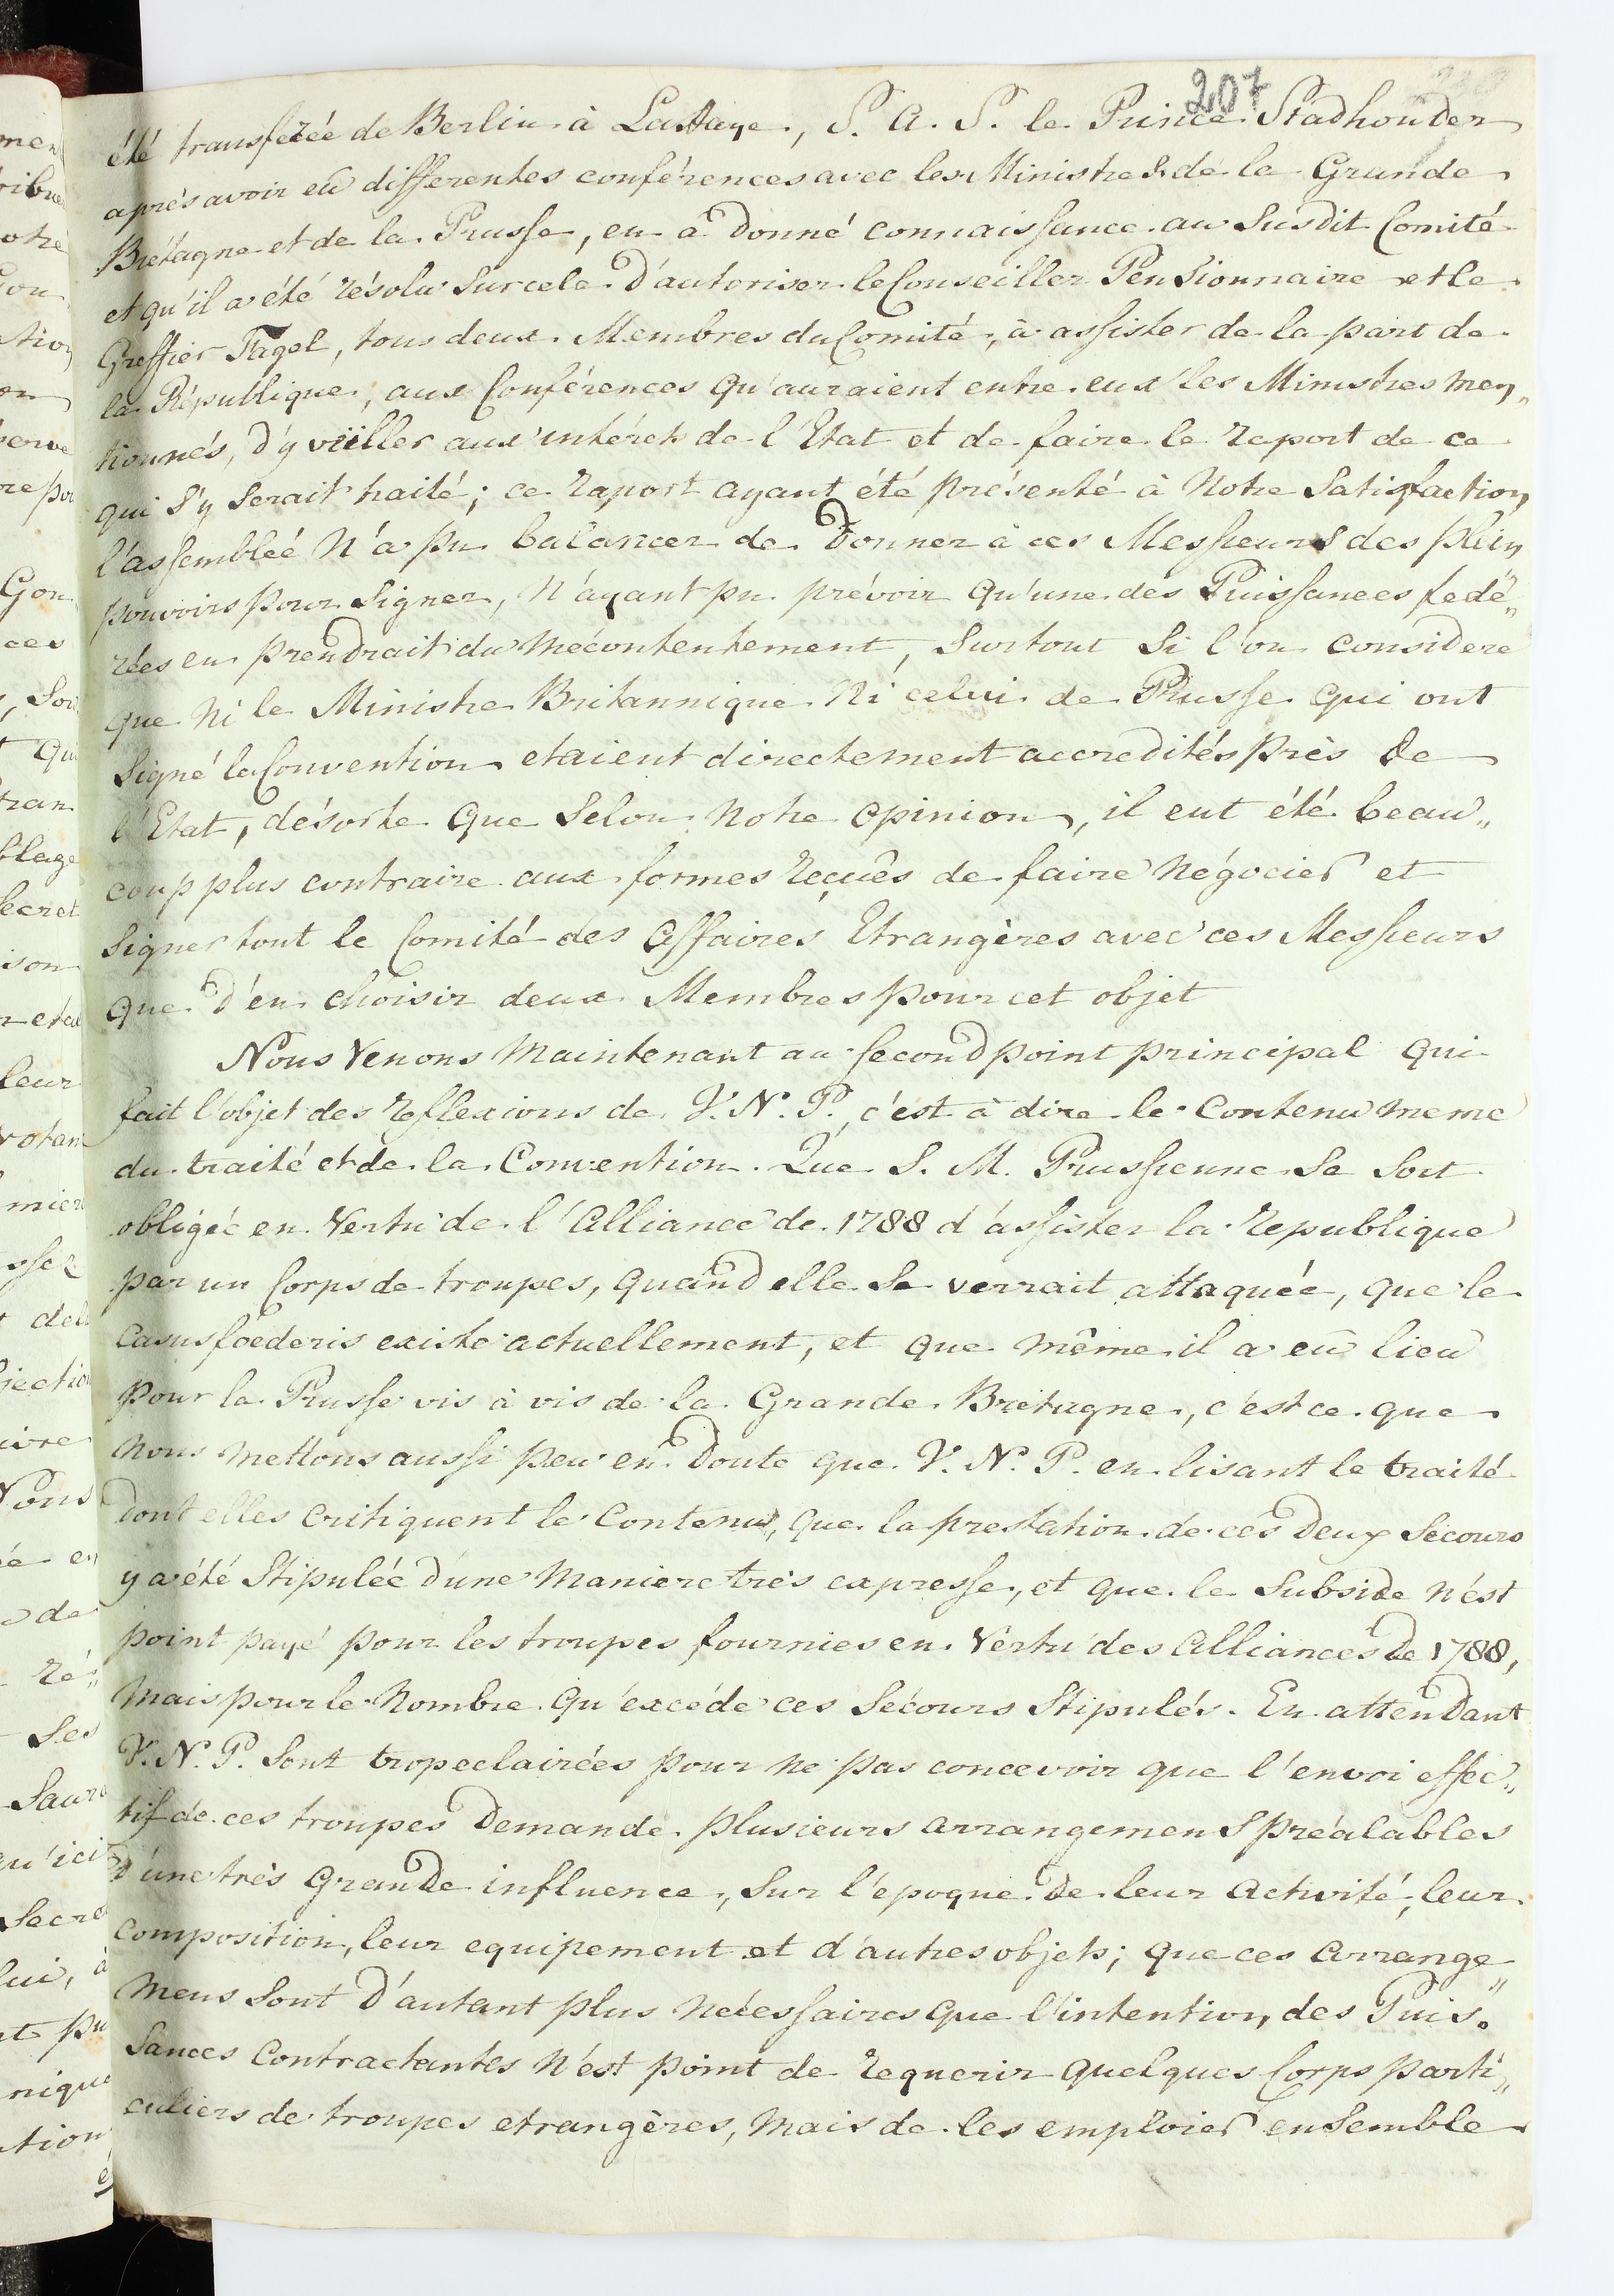 207
été transferée de Berlin à La Haye, S. A. S. le Prince Stadhouder
après avoir eû differentes conférences avec les Ministres de la Grande
Brétagne et de la Prusse, en a donné connaissance au susdit Comité
et qu'il a été résolu sur cela d'autoriser le Conseiller Pensionnaire et le
Greffier Fagel, tous deux Membres du Comité, à assister de la part de
la République, aux Conférences qu'auraient entre eux les Ministres men„
tionnés, d'y veiller aux intérets de l'Etat et de faire le raport de ce
qui s'y serait traité; ce raport ayant été présenté à Notre Satisfaction,
l'assembleé n'a pu balancer de donner à ces Messieurs des plein
pouvoirs pour signer, n'ayant pu prévoir qu'une des Puissances fedé„
rées en prendrait du mécontentement, surtout si l'on considere
que ni le Ministre Britannique ni celui de Prusse qui ont
signé la Convention etaient directement accredités près de
l'Etat, désorte que selon notre opinion, il eut été beau„
coup plus contraire aux formes reçuës de faire négocier et
signer tout le Comité des Affaires Etrangères avec ces Messieurs
que d'en choisir deux Membres pour cet objet
Nous venons maintenant au second point principal qui
fait l'objet des reflexions de V. N. P., c'est à dire le contenu meme
du traité et de la Convention. Que S. M. Prussienne se soit
obligée en vertu de l'Alliance de 1788 d'assister la Republique
par un Corps de troupes, quand elle se verrait attaquée, que le
Casus foederis existe actuellement, et que même il a eû lieu
pour la Prusse vis à vis de la Grande Bretagne, c'est ce que
nous mettons aussi peu en doute que V. N. P. en lisant le traité
dont elles critiquent le contenu, que la prestation de ces deux sécours
y a été stipulée d'une maniere très expresse, et que le subside n'est
point payé pour les troupes fournies en vertu des Alliances de 1788,
mais pour le nombre qu'excéde ces sécours stipulés. En attendant
V. N. P. sont trop eclairées pour ne pas concevoir que l'envoi effec„
tif de ces troupes demande plusieurs arrangemens préalables
d'une très grande influence, sur l'epoque de leur activité, leur
composition, leur equipement et d'autres objets; que ces arrange„
mens sont d'autant plus nécessaires que l'intention des Puis„
sances Contractantes n'est point de requerir quelques Corps parti„
culiers de troupes etrangères, mais de les emploier ensemble